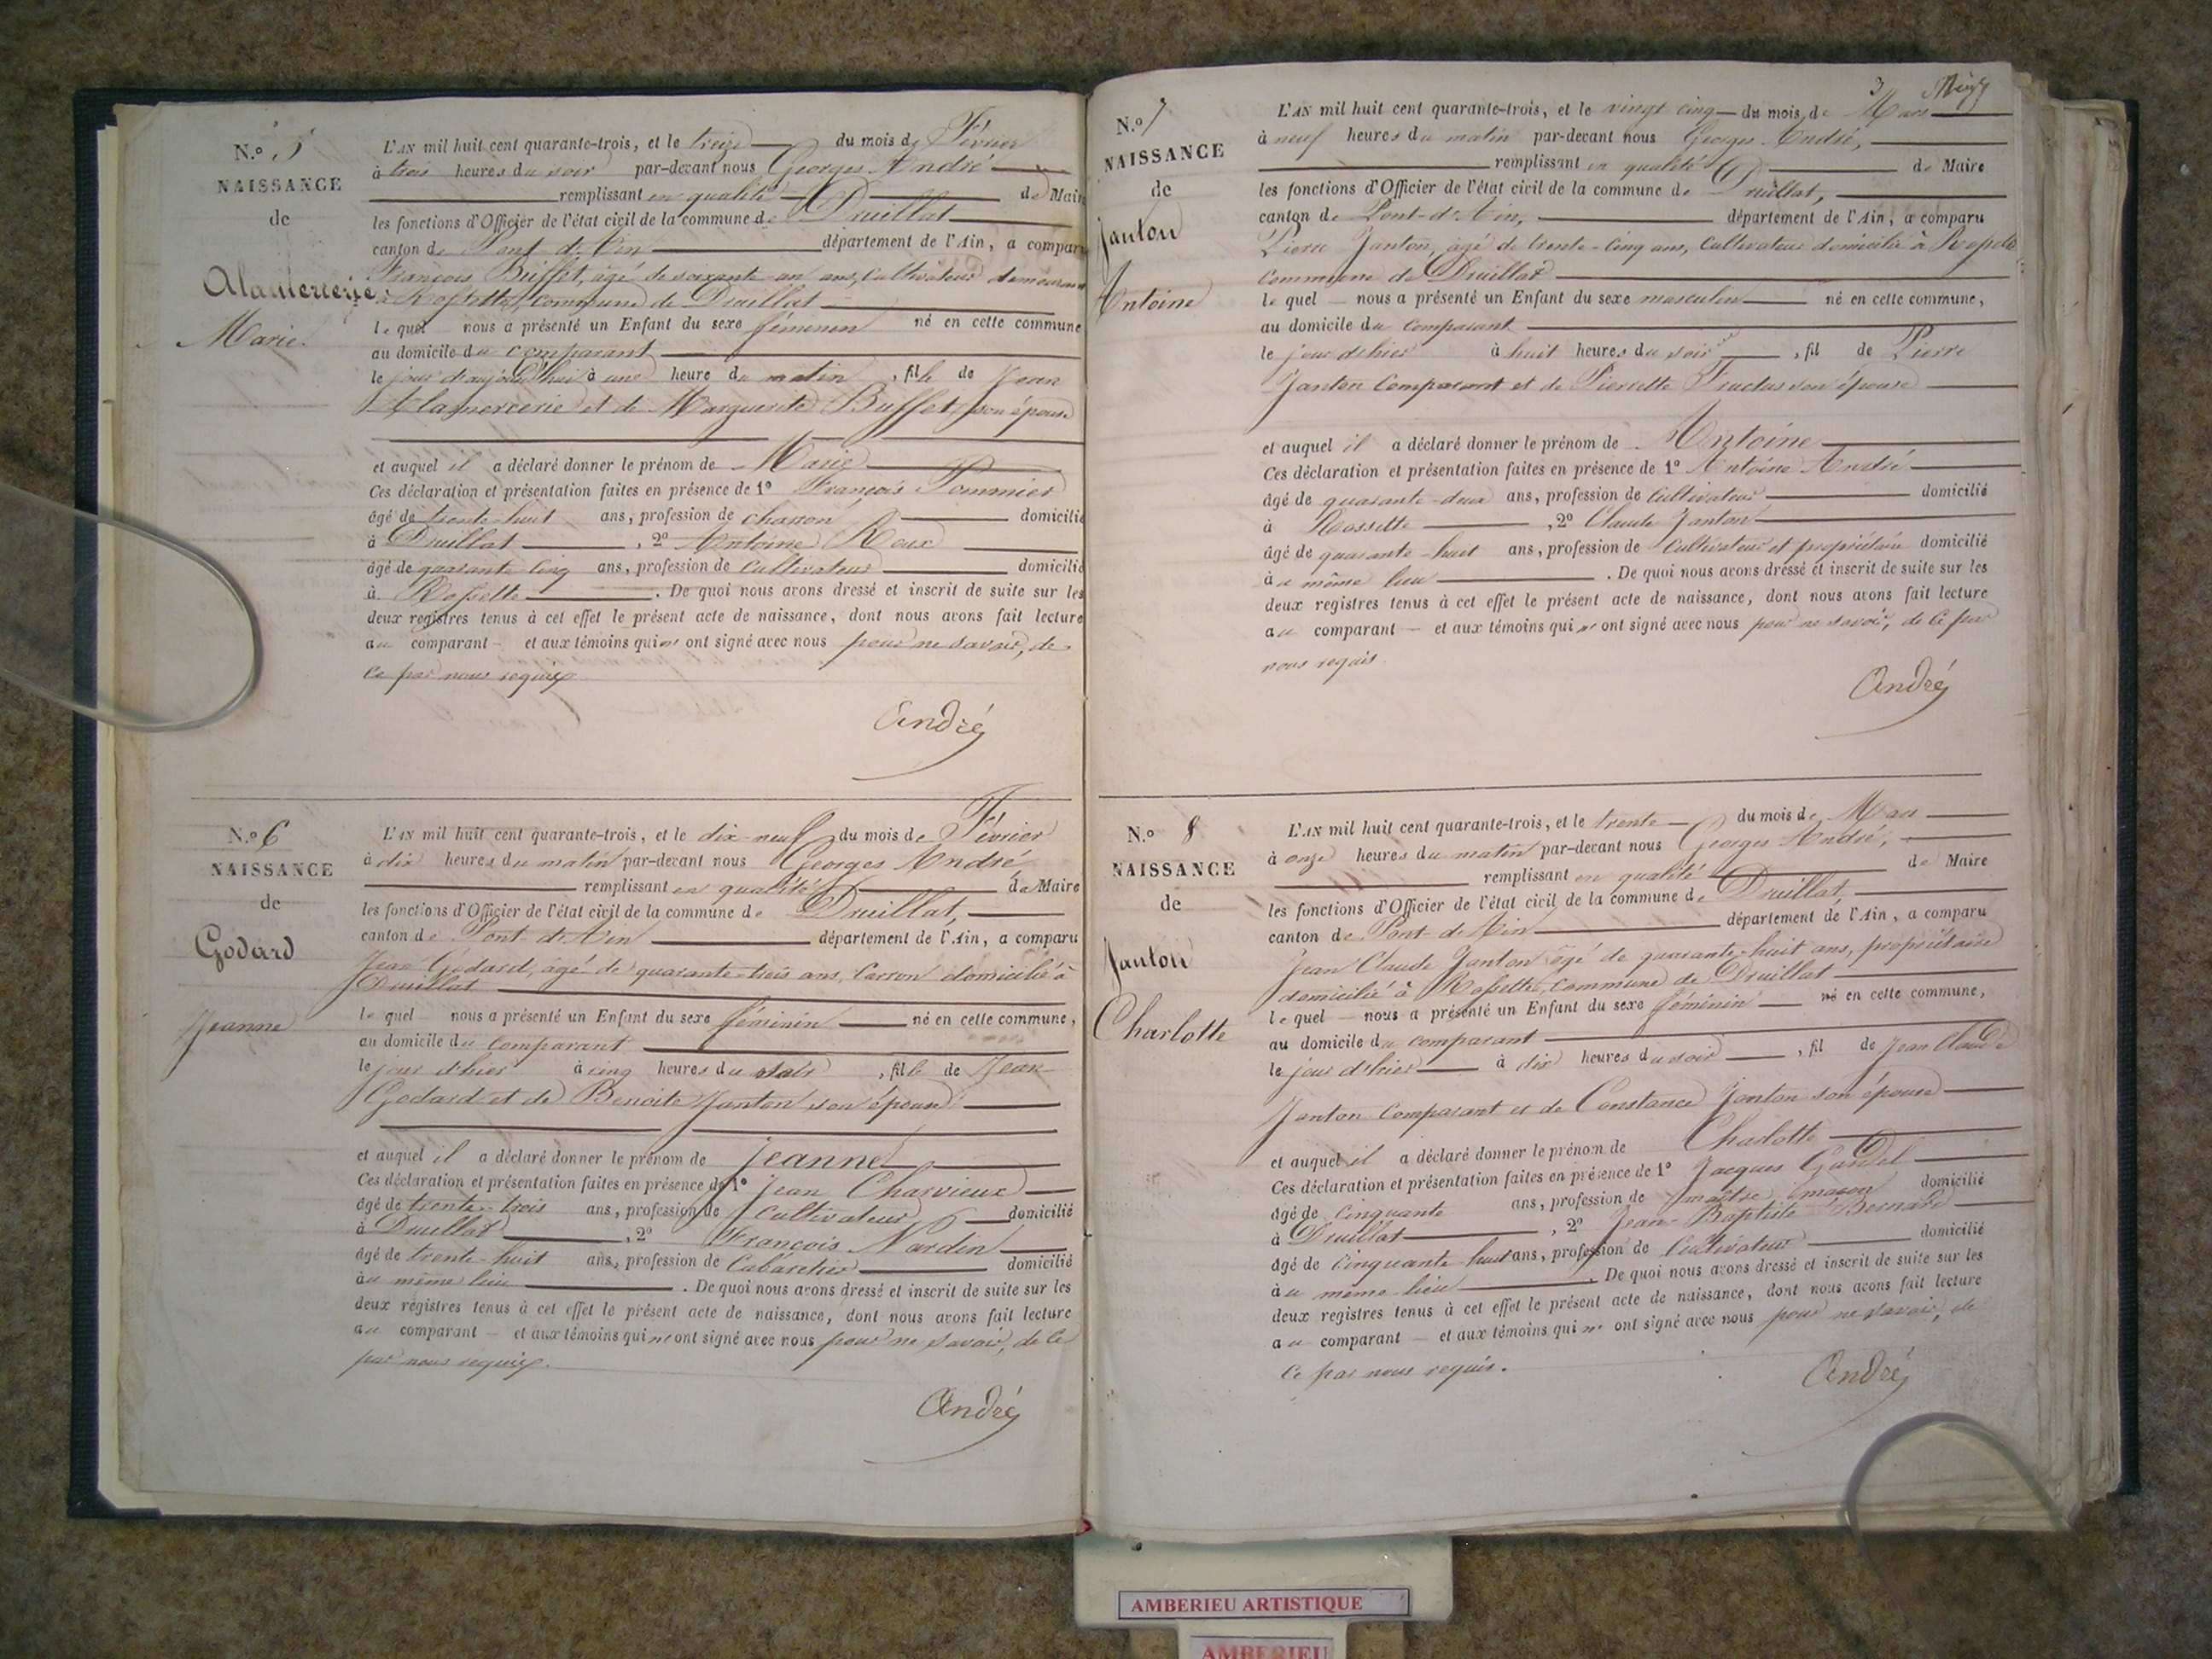 N.º 5
NAISSANCE
de
Alamercerie
Marie.
L'AN mil huit cent quarante-trois, et le treize du mois de Février
à trois heures du soir par-devant nous Georges André
remplissant en qualité de Maire
les fonctions d'Officier de l'état civil de la commune de Druillat
canton de Pont d'Ain département de l'Ain, a comparu
François Buffet, âgé de soixante un ans, cultivateur demeurant
à Rossette, commune de Druillat
le quel nous a présenté un Enfant du sexe féminin né en cette commune
au domicile du comparant
le jour d'aujourd'hui à une heure du matin, fille de Jean
Alamercerie et de Marguerite Buffet, son épouse
et auquel il a déclaré donner le prénom de Marie
Ces déclaration et présentation faites en présence de 1º François Pommier
âgé de trente-huit ans, profession de charron domicilié
à Druillat, 2º Antoine Roux
âgé de quarante cinq ans, profession de cultivateur domicilié
à Rossette. De quoi nous avons dressé et inscrit de suite sur les
deux registres tenus à cet effet le présent acte de naissance, dont nous avons fait lecture
au comparant et aux témoins qui n' ont signé avec nous pour ne savoir, de
ce par nous requis
André
N.º 6
NAISSANCE
de
Godard
Jeanne
L'AN mil huit cent quarante-trois, et le dix-neuf du mois de Février
à dix heures du matin par-devant nous Georges André
remplissant en qualité de Maire
les fonctions d'Officier de l'état civil de la commune de Druillat,
canton de Pont d'Ain département de l'Ain, a comparu
Jean Godard, âgé de quarante-trois ans, domicilié à
Druillat
le quel nous a présenté un Enfant du sexe féminin né en cette commune,
au domicile du comparant
le jour d'hier à cinq heures du soir, fille de Jean
Godard et de Benoite Janton son épouse
et auquel il a déclaré donner le prénom de Jeanne
Ces déclaration et présentation faites en présence de 1º Jean Charvieux
âgé de trente-trois ans, profession de cultivateur domicilié
à Druillat, 2º François Nardin
âgé de trente-huit ans, profession de Cabaretier domicilié
au même lieu. De quoi nous avons dressé et inscrit de suite sur les
deux registres tenus à cet effet le présent acte de naissance, dont nous avons fait lecture
au comparant et aux témoins qui n'ont signé avec nous pour ne savoir, de ce
par nous requis.
André
3
N.º 7
NAISSANCE
de
Janton
Antoine
L'AN mil huit cent quarante-trois, et le vingt cinq du mois de Mars
à neuf heures du matin par-devant nous Georges André,
remplissant en qualité de Maire
les fonctions d'Officier de l'état civil de la commune de Druillat,
canton de Pont-d'Ain, département de l'Ain, a comparu
Pierre Janton, âgé de trente-cinq ans, cultivateur domicilié à Rossette
commune de Druillat
le quel nous a présenté un Enfant du sexe masculin né en cette commune,
au domicile du comparant
le jour d'hier à huit heures du soir, fil de Pierre
Janton comparant et de Pierrette Fructus son épouse
et auquel il a déclaré donner le prénom de Antoine
Ces déclaration et présentation faites en présence de 1º Antoine André
âgé de quarante-deux ans, profession de cultivateur domicilié
à Rossette, 2º Claude Janton
âgé de quarante-huit ans, profession de cultivateur et propriétaire domicilié
au même lieu. De quoi nous avons dressé et inscrit de suite sur les
deux registres tenus à cet effet le présent acte de naissance, dont nous avons fait lecture
au comparant et aux témoins qui n' ont signé avec nous pour ne savoir, de ce par
nous requis.
André
N.º 8
NAISSANCE
de
Janton
Charlotte
L'AN mil huit cent quarante-trois, et le trente du mois de Mars
à onze heures du matin par-devant nous Georges André,
remplissant en qualité de Maire
les fonctions d'Officier de l'état civil de la commune de Druillat,
canton de Pont-d'Ain département de l'Ain, a comparu
Jean Claude Janton âgé de quarante-huit ans, propriétaire
domicilié à Rossette, commune de Druillat
le quel nous a présenté un Enfant du sexe féminin né en cette commune,
au domicile du comparant
le jour d'hier à dix heures du soir, fil de Jean Claude
Janton comparant et de Constance Janton son épouse
et auquel il a déclaré donner le prénom de Charlotte
Ces déclaration et présentation faites en présence de 1º Jacques
âgé de cinquante ans, profession de maître maçon domicilié
à Druillat, 2º Jean-Baptiste Bernard
âgé de cinquante huit ans, profession de cultivateur domicilié
au même lieu. De quoi nous avons dressé et inscrit de suite sur les
deux registres tenus à cet effet le présent acte de naissance, dont nous avons fait lecture
au comparant et aux témoins qui n' ont signé avec nous pour ne savoir, de
ce par nous requis.
André
AMBERIEU ARTISTIQUE
AMBERIEU